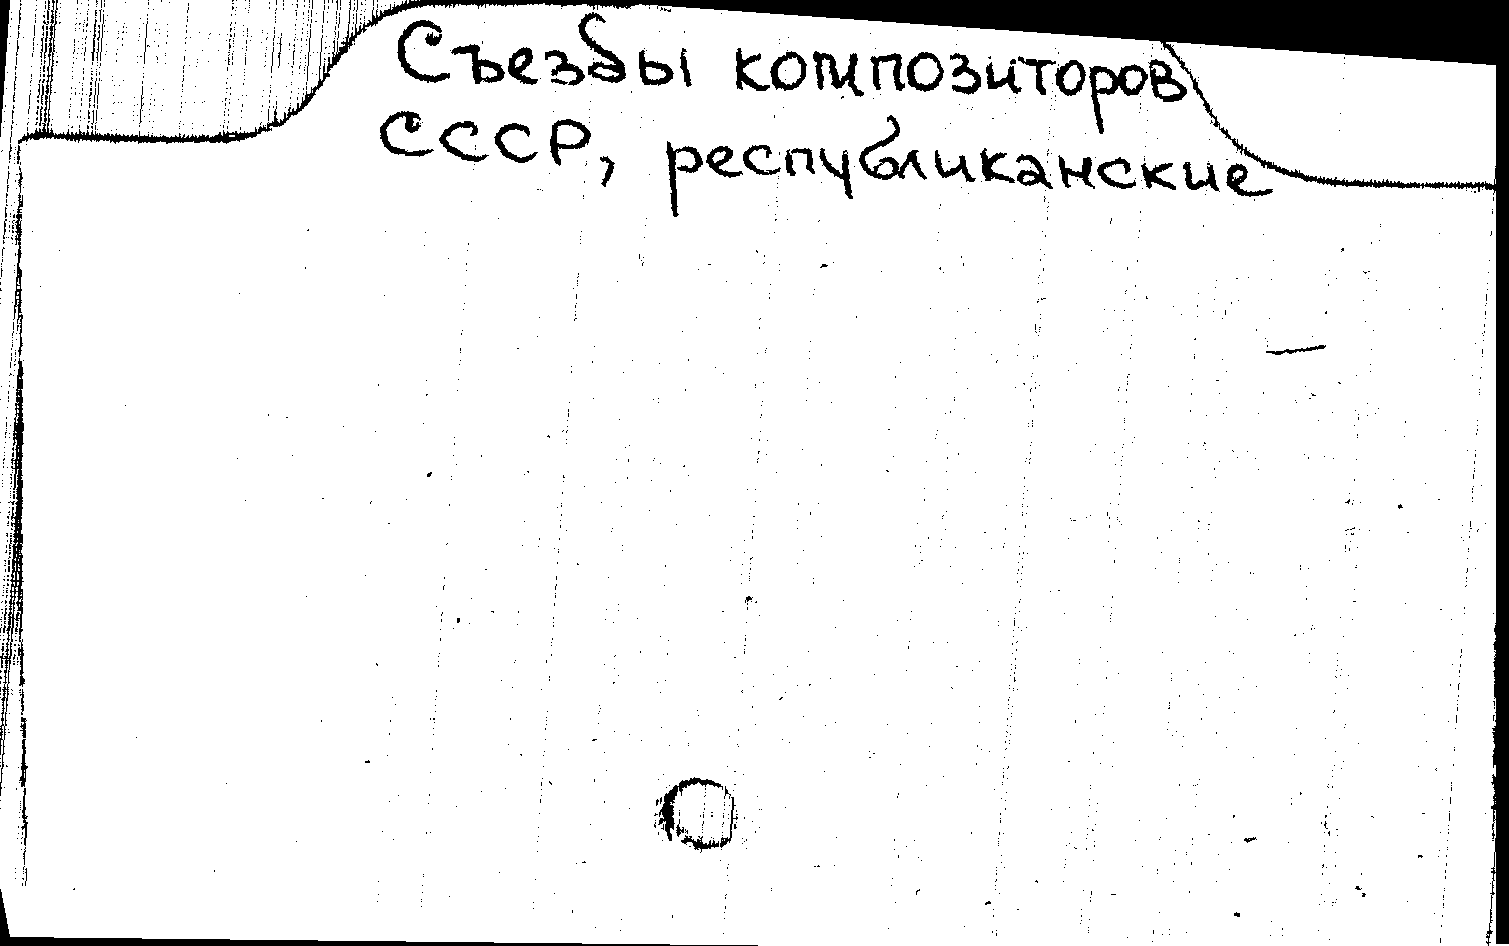 Съезды композиторов
СССР, республиканские